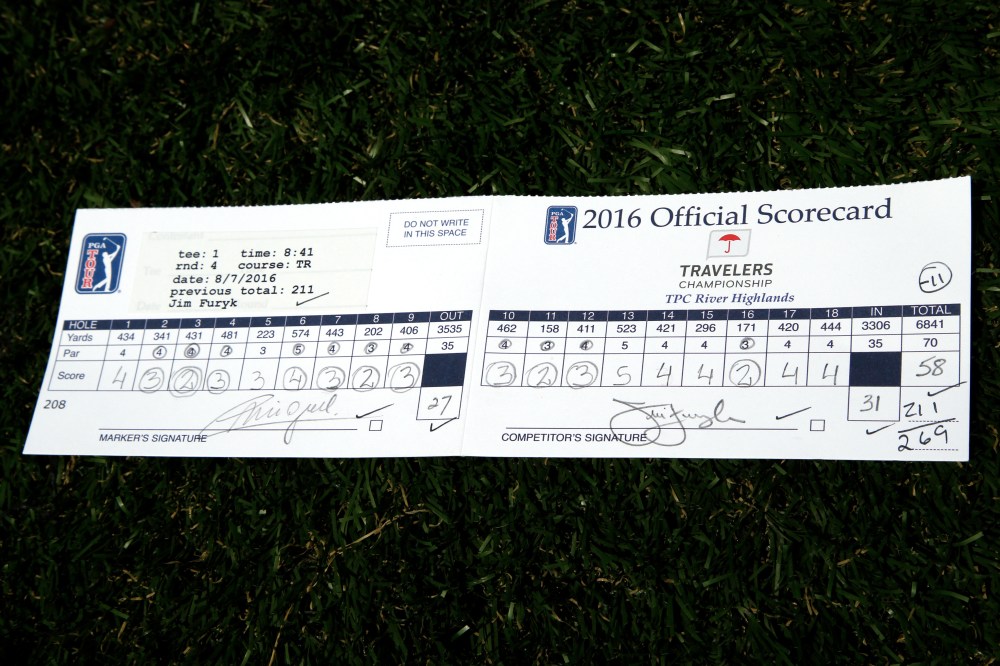 PGA TOUR
tee: 1 time: 8:41
rnd: 4 course: TR
date: 8/7/2016
previous total: 211
Jim Furyk
DO NOT WRITE
IN THIS SPACE
HOLE 1 2 3 4 5 6 7 8 9 OUT
Yards 434 341 431 481 223 574 443 202 406 3535
Par 4 4 4 4 3 5 4 3 4 35
Score 4 3 2 3 3 4 3 2 3
27
208
MARKER'S SIGNATURE
PGA TOUR
2016 Official Scorecard
TRAVELERS
CHAMPIONSHIP
TPC River Highlands
-11
10 11 12 13 14 15 16 17 18 IN TOTAL
462 158 411 523 421 296 171 420 444 3306 6841
4 3 4 5 4 4 3 4 4 35 70
3 2 3 5 4 4 2 4 4 58
31 211
269
Jim Furyk
COMPETITOR'S SIGNATURE